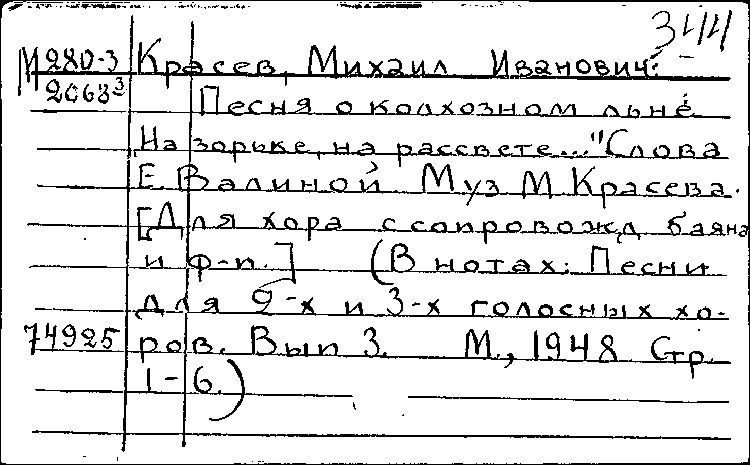 344
М280-3 Красев, Михаил Иванович:
2063³ Песня о колхозном льне
На зорьке, на рассвете..." Слова
Е. Валиной Муз М Красева.
[Для хора с сопровожд баяна
и ф-п.] (В нотах: Песни
для 2-х и 3-х голосных хо-
74925 ров. Вып 3. М., 1948 Стр.
1-6.)